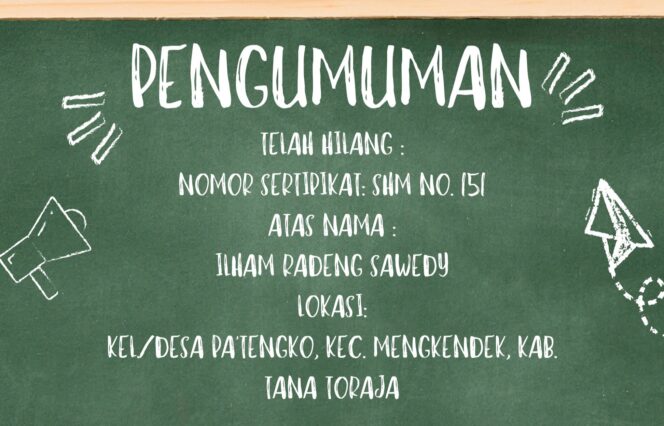 PENGUMUMAN
TELAH HILANG :
NOMOR SERTIPIKAT: SHM NO. 151
ATAS NAMA :
ILHAM RADENG SAWEDY
LOKASI:
KEL/DESA PA'TENGKO, KEC. MENGKENDEK, KAB.
TANA TORAJA